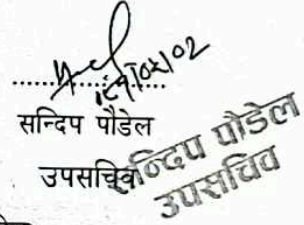 सन्दिप पौडेल
उपसचिव
सन्दिप पौडेल
उपसचिव